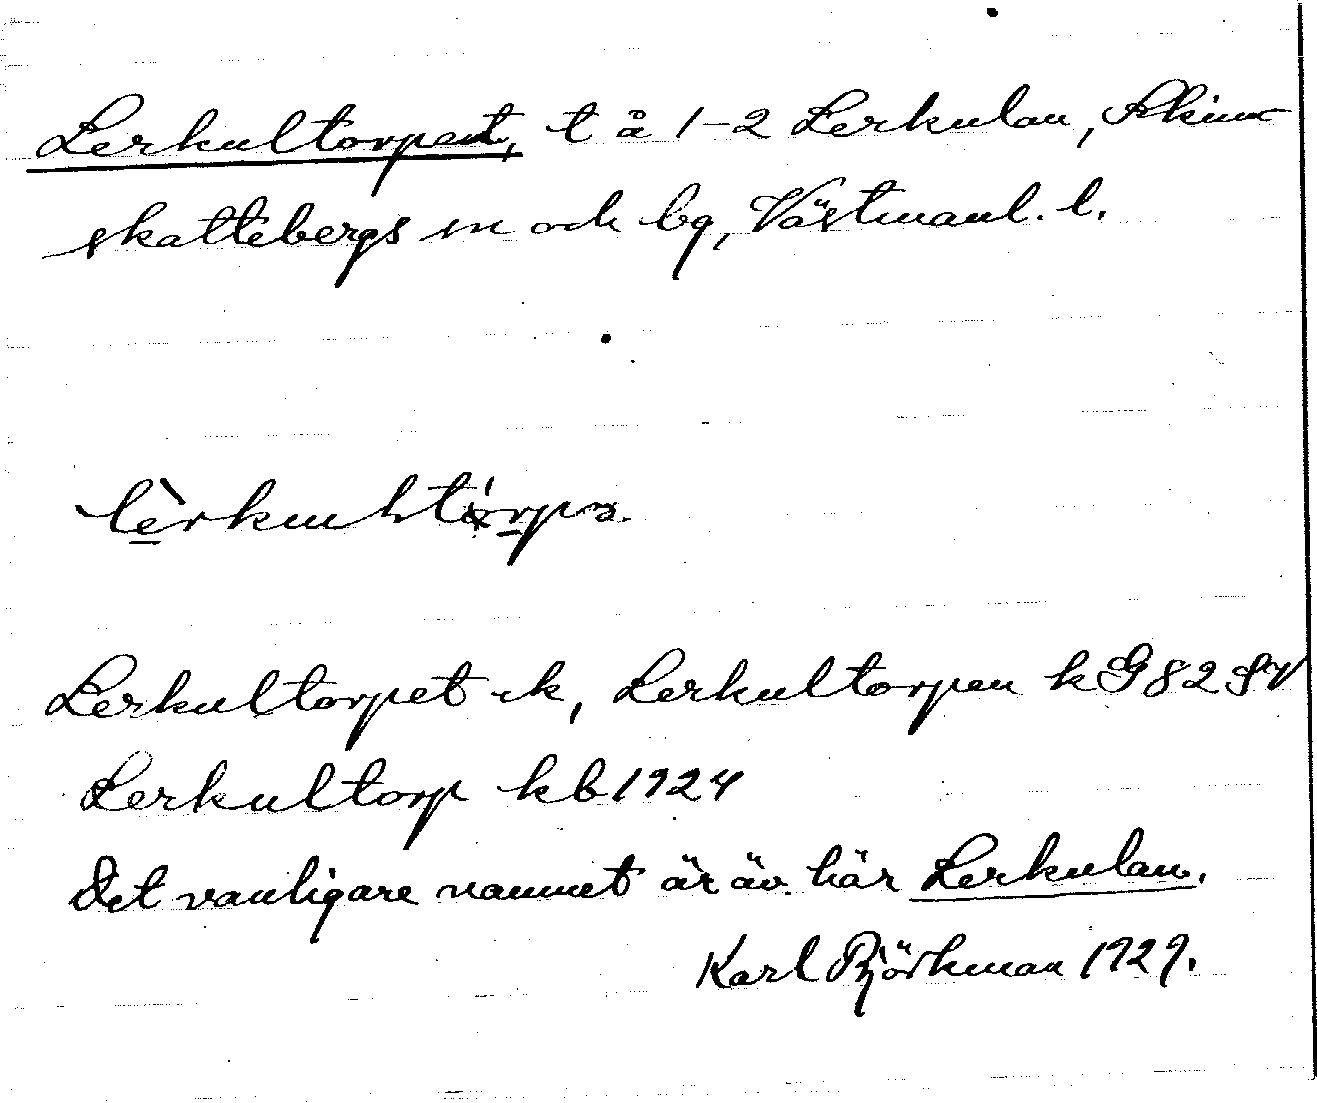 Lerkultorpet, t å 1-2 Lerkulan, Skinn-
skattebergs sn och bg, Västmanl. l.
Lerkultorpet ek, Lerkultorpen kG82SV
Lerkultorp kb 1924
Det vanligare namnet är äv. här Lerkulan.
Karl Björkman 1929.